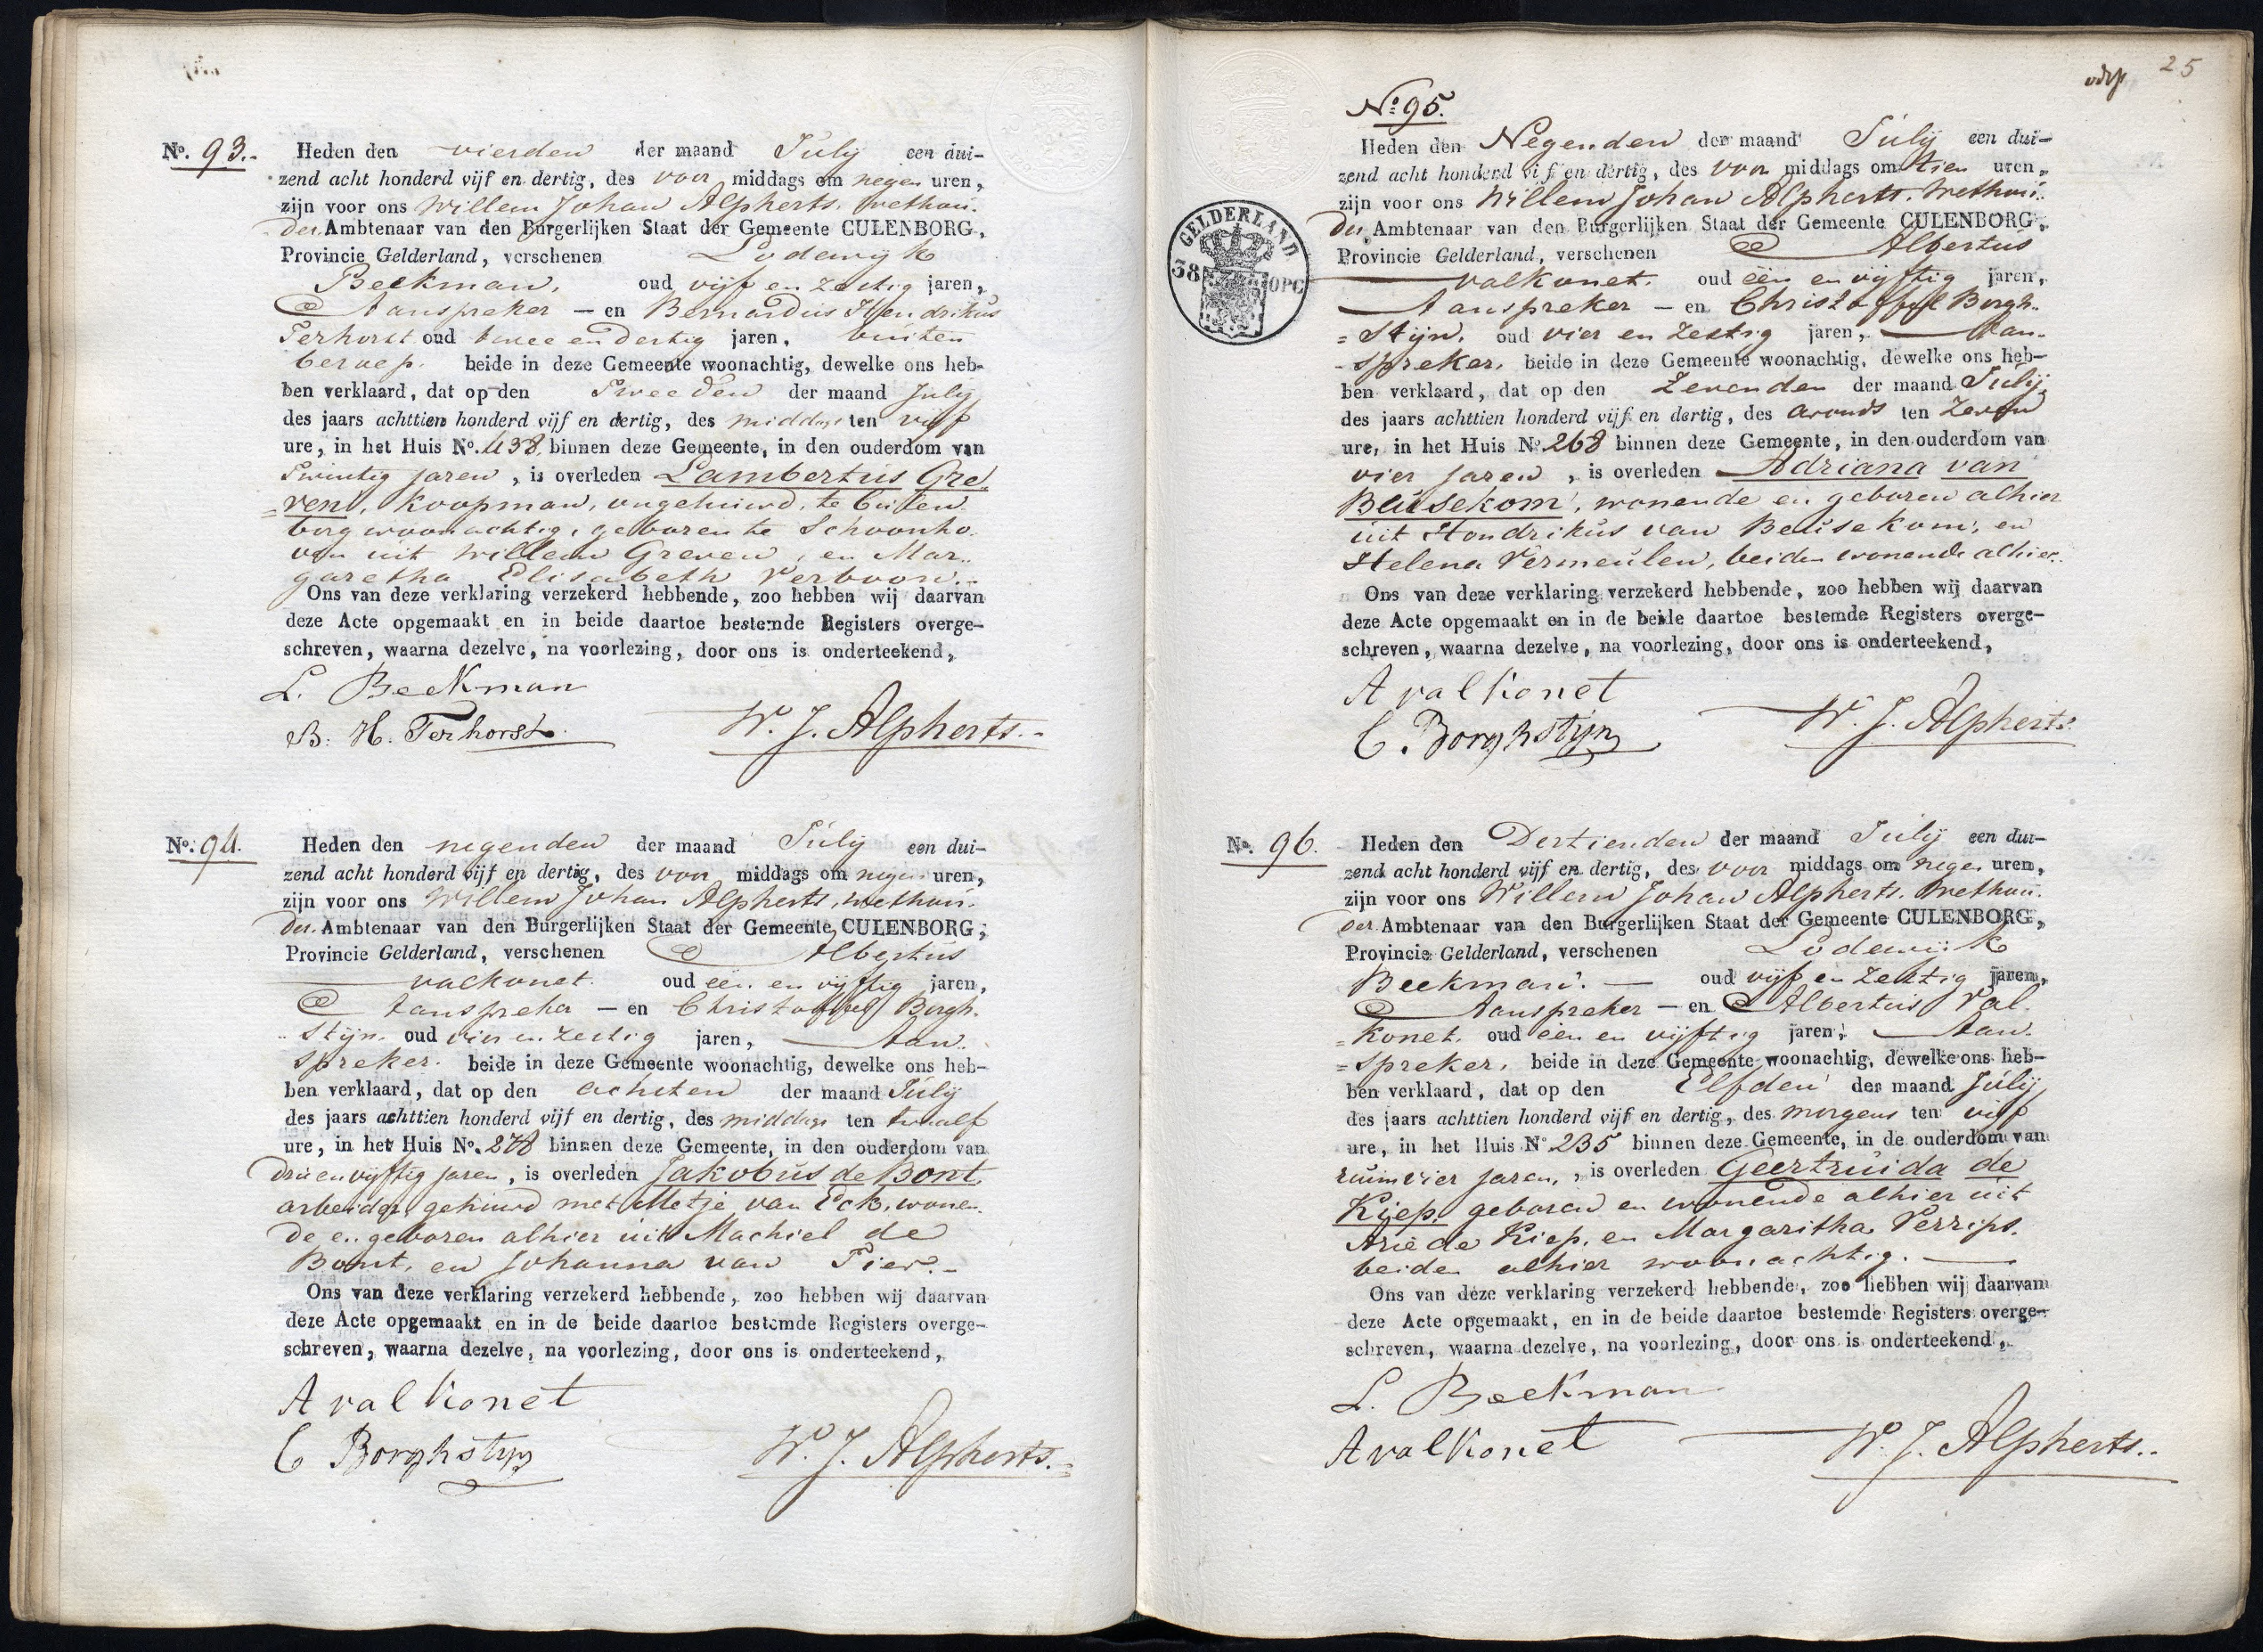 No. 93.-
Heden den vierden der maand Julij een dui-
zend acht honderd vijf en dertig, des voor middags om negen uren,
zijn voor ons Willem Johan Alpherts. Wethou-
der Ambtenaar van den Burgerlijken Staat der Gemeente CULENBORG,
Provincie Gelderland, verschenen Lodewijk
Beekman, oud vijf en zestig jaren,
Aanspreker - en Bernardus Hendrikus
Terhorst oud twee en dertig jaren, buiten
beroep. beide in deze Gemeente woonachtig, dewelke ons heb-
ben verklaard, dat op den Tweeden der maand Julij
des jaars achttien honderd vijf en dertig, des middags ten vijf
ure, in het Huis No. 438. binnen deze Gemeente, in den ouderdom van
Twintig jaren, is overleden Lambertus Gre-
=ven, koopman, ongehuwd, te Culen-
borg woonachtig, geboren te Schoonho-
ven uit Willem Greven, en Mar-
garetha Elisabeth Verboon.-
Ons van deze verklaring verzekerd hebbende, zoo hebben wij daarvan
deze Acte opgemaakt en in beide daartoe bestemde Registers overge-
schreven, waarna dezelve, na voorlezing, door ons is onderteekend,
L. Beekman
B. H. Terhorst.
W. J. Alpherts.-
No. 94.
Heden den negenden der maand Julij een dui-
zend acht honderd vijf en dertig, des voor middags om negen uren,
zijn voor ons Willem Johan Alpherts, wethou-
der. Ambtenaar van den Burgerlijken Staat der Gemeente CULENBORG,
Provincie Gelderland, verschenen Albertus
valkonet. oud één en vijftig jaren,
Aanspreker - en Christoffel Borgh-
stijn. oud vier en zestig jaren, Aan-
spreker. beide in deze Gemeente woonachtig, dewelke ons heb-
ben verklaard, dat op den achsten der maand Julij
des jaars achttien honderd vijf en dertig, des middags ten twaalf
ure, in het Huis No. 278 binnen deze Gemeente, in den ouderdom van
drie en vijftig jaren, is overleden Jakobus de Bont,
arbeider, gehuwd met Metje van Eck, wonen-
de en geboren alhier uit Machiel de
Bont, en Johanna van Tier.-
Ons van deze verklaring verzekerd hebbende, zoo hebben wij daarvan
deze Acte opgemaakt en in de beide daartoe bestemde Registers overge-
schreven, waarna dezelve, na voorlezing, door ons is onderteekend,
A valkonet
C Borghstyn
W. J. Alpherts.
25
No 95.
GELDERLAND
38 OPC
Heden den Negenden der maand Julij een dui-
zend acht honderd vijf en dertig, des voor middags om tien uren,
zijn voor ons Willem Johan Alpherts. Wethou-
der, Ambtenaar van den Burgerlijken Staat der Gemeente CULENBORG,
Provincie Gelderland, verschenen Albertus
valkonet. oud één en vijftig jaren,
Aanspreker - en Christoffel Borgh-
=stijn. oud vier en zestig jaren, Aan-
-spreker, beide in deze Gemeente woonachtig, dewelke ons heb-
ben verklaard, dat op den Zevenden der maand Julij,
des jaars achttien honderd vijf en dertig, des avonds ten zeven
ure, in het Huis No. 268 binnen deze Gemeente, in den ouderdom van
vier jaren, is overleden Adriana van
Beusekom, wonende en geboren alhier
uit Hendrikus van Beusekom, en
Helena Vermeulen, beiden wonende alhier.
Ons van deze verklaring verzekerd hebbende, zoo hebben wij daarvan
deze Acte opgemaakt en in de beide daartoe bestemde Registers overge-
schreven, waarna dezelve, na voorlezing, door ons is onderteekend,
A valkonet
C. Borghstijn
W. J. Alpherts.
No. 96.
Heden den Dertienden der maand Julij een dui-
zend acht honderd vijf en dertig, des voor middags om negen uren,
zijn voor ons Willem Johan Alpherts. Wethou-
der Ambtenaar van den Burgerlijken Staat der Gemeente CULENBORG,
Provincie Gelderland, verschenen Lodewijk
Beekman. - oud vijf en zestig jaren,
Aanspreker - en Albertus Val-
=konet. oud één en vijftig jaren, Aan-
=spreker. beide in deze Gemeente woonachtig, dewelke ons heb-
ben verklaard, dat op den Elfden der maand Julij,
des jaars achttien honderd vijf en dertig, des morgens ten vijf
ure, in het Huis No 235 binnen deze Gemeente, in de ouderdom van
ruim vier jaren, is overleden Geertruida de
Kiep, geboren en wonende alhier uit
Arie de Kiep, en Margaritha Verrips.
beiden alhier woonachtig.
Ons van deze verklaring verzekerd hebbende, zoo hebben wij daarvan
deze Acte opgemaakt, en in de beide daartoe bestemde Registers overge-
schreven, waarna dezelve, na voorlezing, door ons is onderteekend,
L. Beekman
A valkonet
W. J. Alpherts.